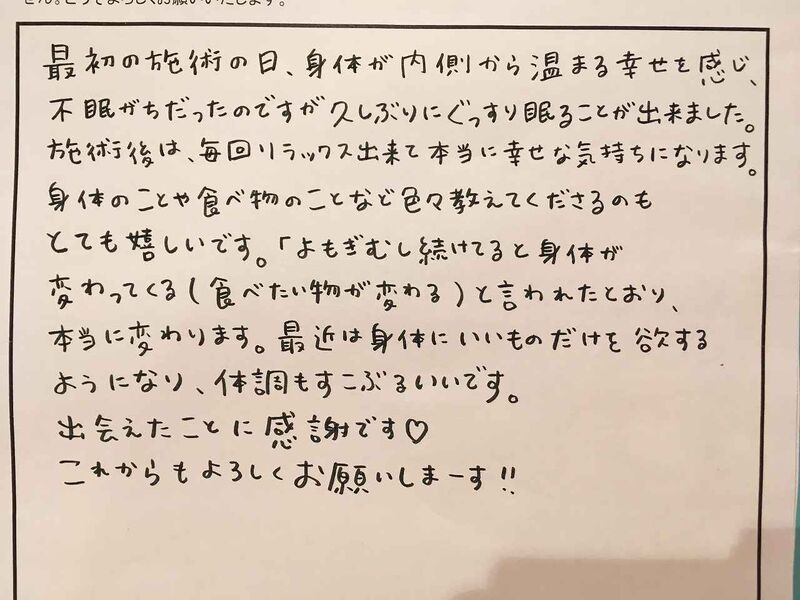 せん。どうぞよろしくお願いいたします。
最初の施術の日、身体が内側から温まる幸せを感じ、
不眠がちだったのですが久しぶりにぐっすり眠ることが出来ました。
施術後は、毎回リラックス出来て本当に幸せな気持ちになります。
身体のことや食べ物のことなど色々教えてくださるのも
とても嬉しいです。「よもぎむし続けてると身体が
変わってくる(食べたい物が変わる)と言われたとおり、
本当に変わります。最近は身体にいいものだけを欲する
ようになり、体調もすこぶるいいです。
出会えたことに感謝です♡
これからもよろしくお願いしまーす!!